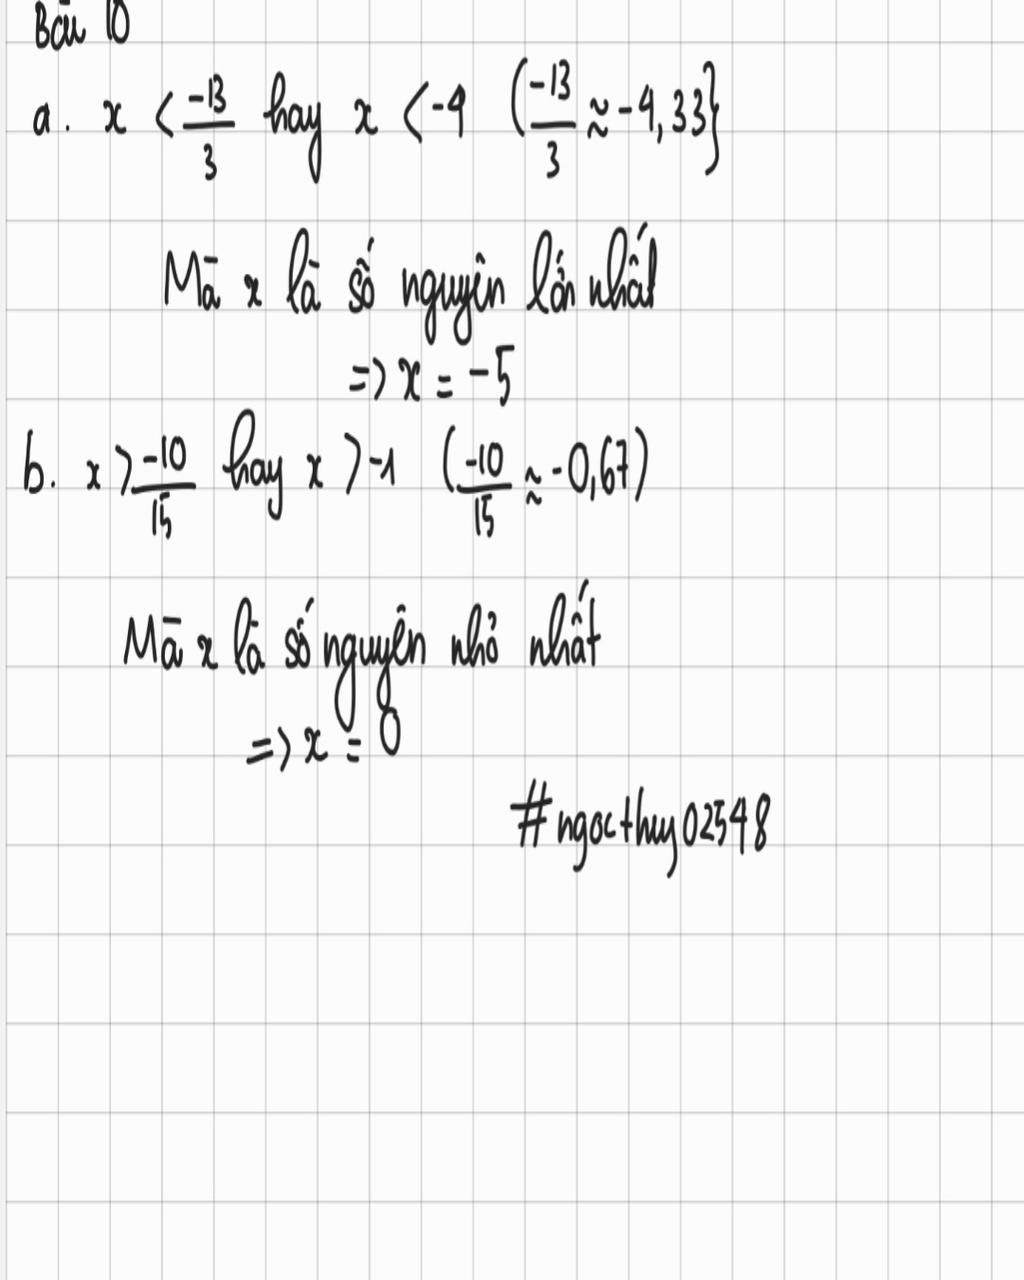 Bài 10
a. x < -13/3 hay x < -4 (-13/3 ≈ -4,33}
Mà x là số nguyên lớn nhất
=> x = -5
b. x > -10/15 hay x > -1 (-10/15 ≈ -0,67)
Mà x là số nguyên nhỏ nhất
=> x = 0
#ngocthuy02548